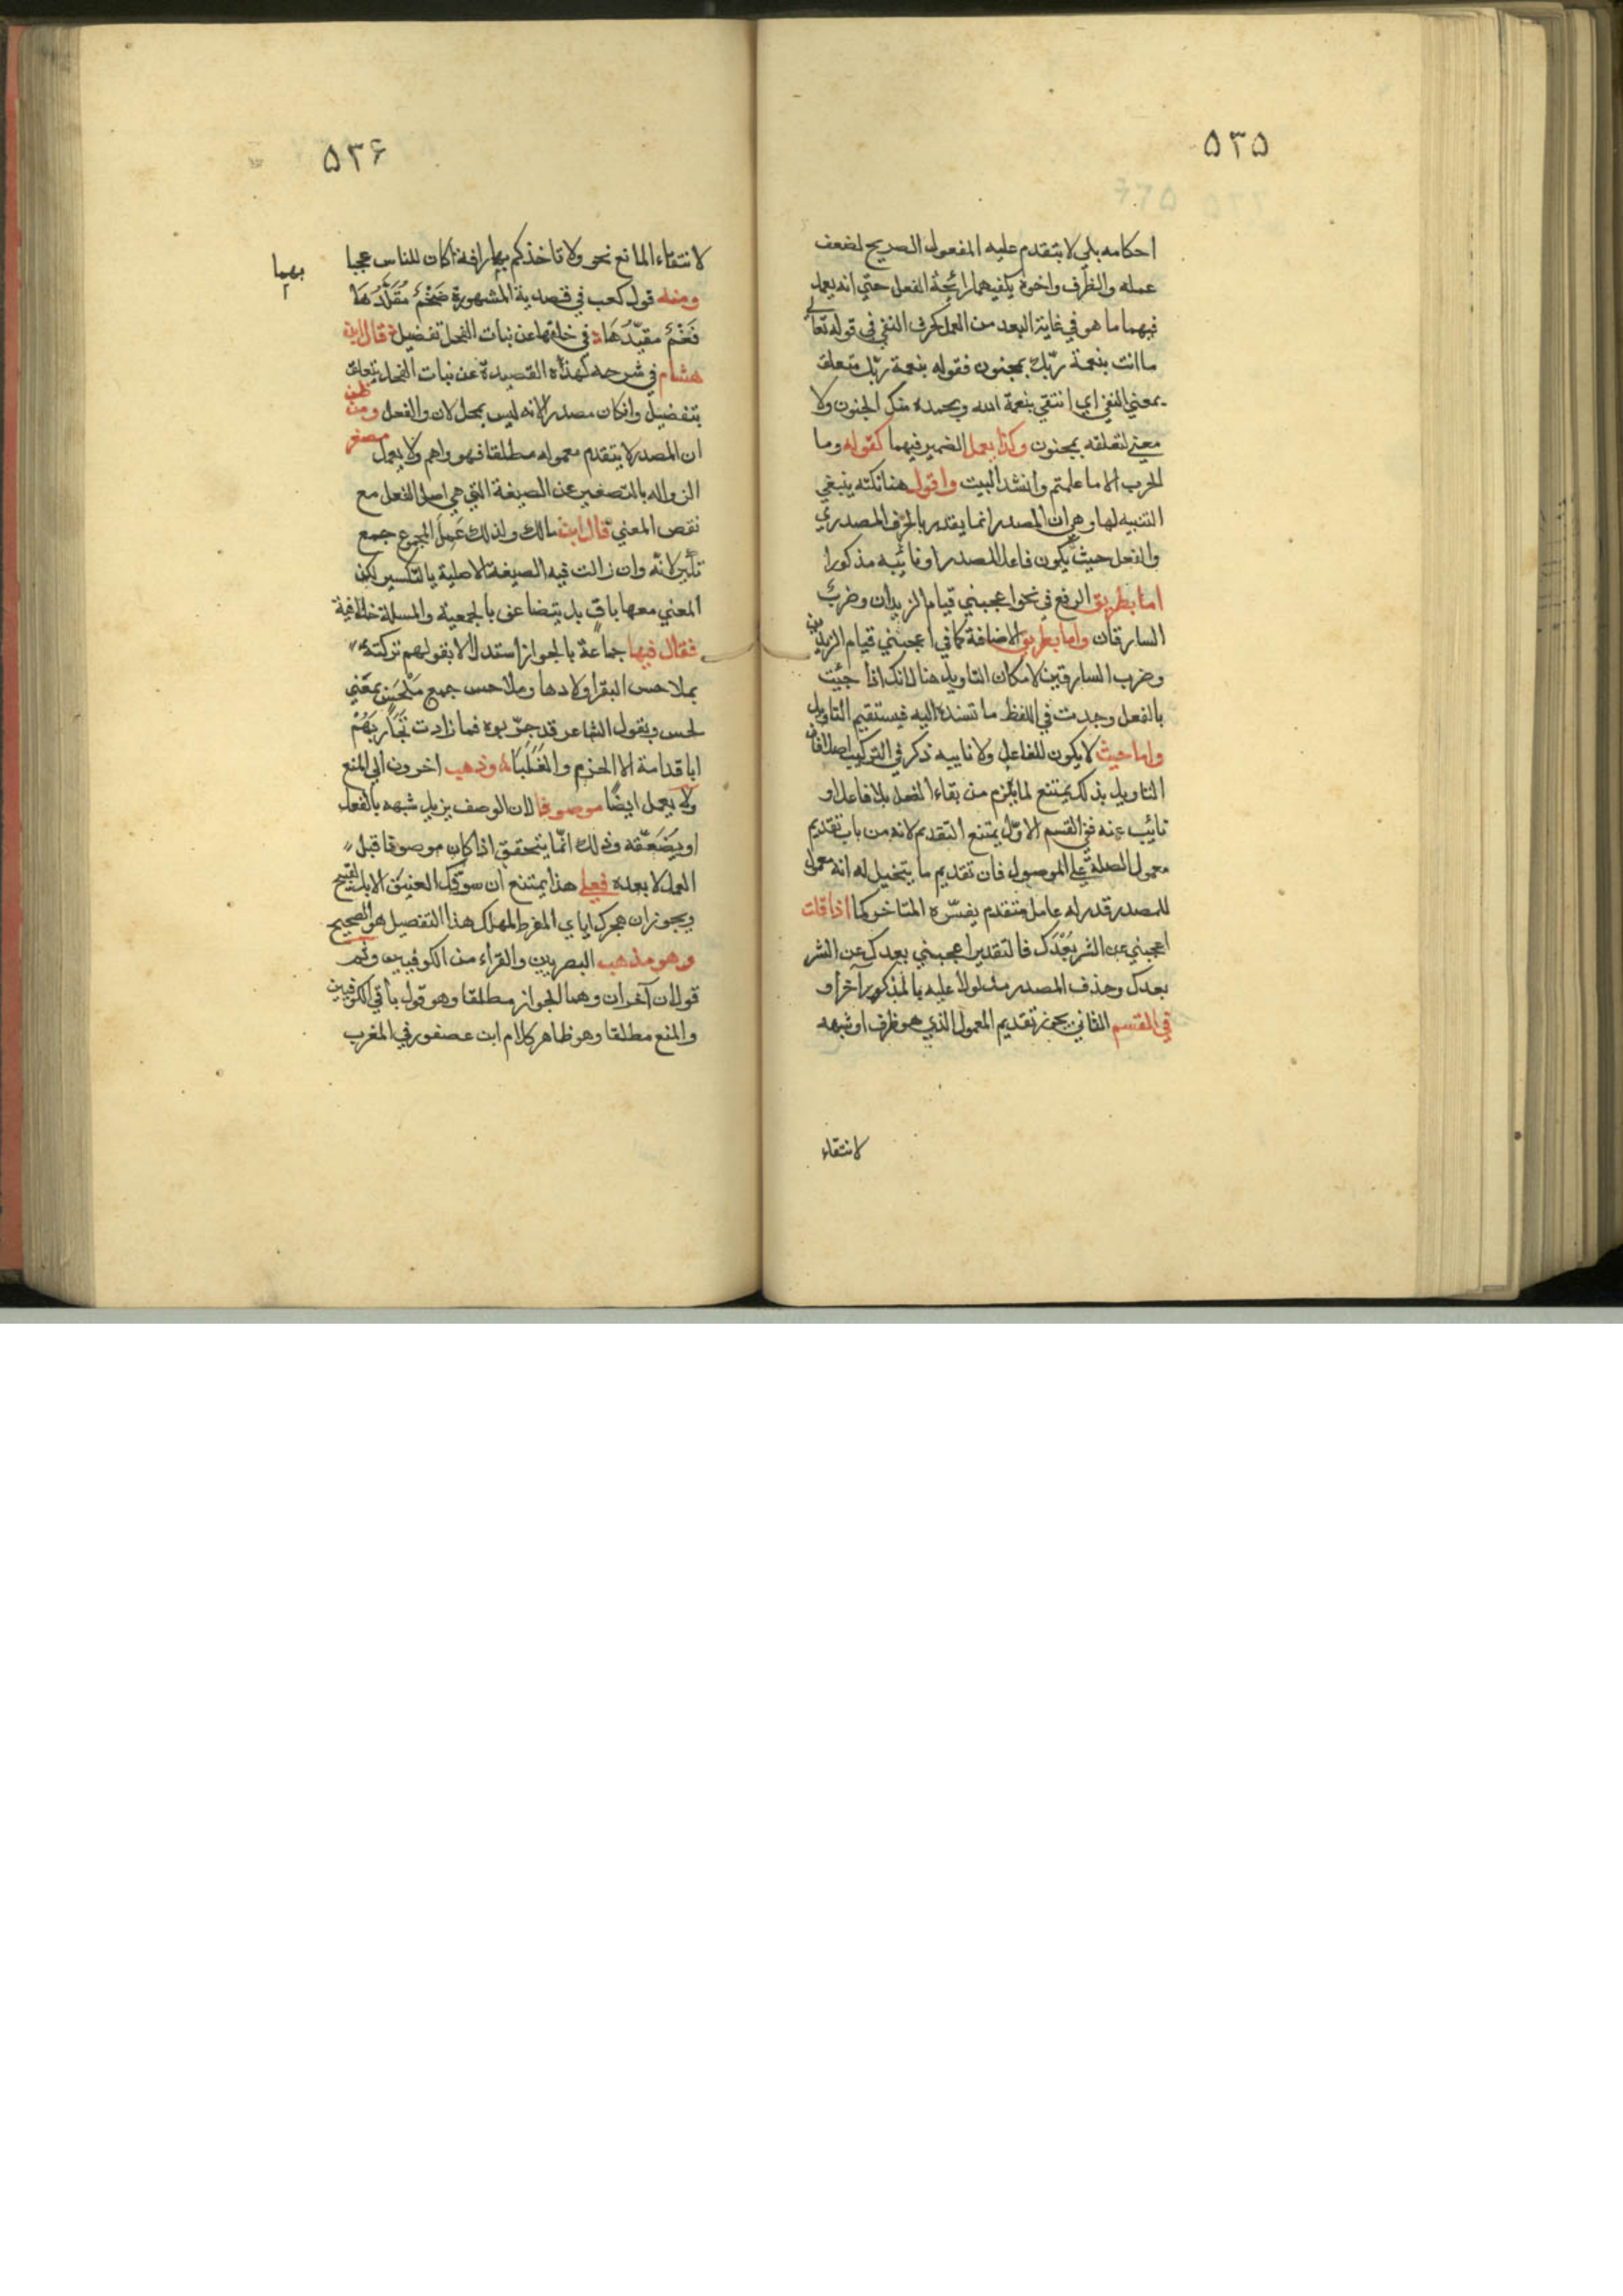 ۵۳۵
احكامه بلي لا يتقدم عليه المفعول الصريح لضعف
عمله والظرف واخوه يكفيهما رائحة الفعل حتي انه يعمل
فيهما ما هو في غاية البعد من العمل كحرف النفي في قوله تعالي
ما انت بنعمة ربّك بمجنون فقوله بنعمة ربّك متعلق
بمعني النفي اي انتفي بنعمة الله وبحمده عنك الجنون ولا
معني لتعلقه بمجنون وكذا يعمل الضمير فيهما كقوله وما
الحرب الا ما علمتم وانشد البيت واقول هنا نكته ينبغي
التنبيه لها وهي ان المصدر انما يقدر بالحرف المصدري
والفعل حيث يكون فاعل المصدر او نائبه مذكورا
اما بطريق الرفع في نحو اعجبني قيام الزيدان وضرب
السارقان واما بطريق الاضافة كما في اعجبني قيام الزيدين
وضرب السارقين لامكان التاويل هنا لانك اذا جئت
بالفعل وجدت في اللفظ ما تسنده اليه فيستقيم التاويل
واما حيث لا يكون للفاعل ولا ناييه ذكر في التركيب اصلا فان
التاويل بذلك يمتنع لما يلزم من بقاء الفعل بلا فاعل او
نائب عنه ففي القسم الاوّل يمتنع التقديم لانه من باب تقديم
معمول الصلة علي الموصول فان تقديم ما يتخيل له انه معمول
للمصدر قدر له عامل متقدم يفسّره المتاخر كما اذا قلت
اعجبني عن الشر بُعْدَك فالتقدير اعجبني بعدك عن الشر
بعدك وحذف المصدر مدلولا عليه بالمذكور آخرا و
في القسم الثاني يجوز تقديم المعمول الذي هو ظرف او شبهه
لانتفاء
۵۳۶
لانتفاء المانع نحو ولا تاخذكم بهما رافة اكان للناس عجبا
بهما
ومنه قول كعب في قصديه المشهورة ضَخْمٌ مُقَلَّدُهَا
فَعْمٌ مقيّدُهَا في خلقها عن نبات الفحل تفضيل قال ابن
هشام في شرحه لهذه القصيدة عن نبات الفحل يتعلق
بتفضيل وان كان مصدرا لانه ليس بمحل لان والفعل ومن ظن
ان المصدر لا يتقدم معموله مطلقا فهو واهم ولا يعمل مصغر
الزواله بالتصغير عن الصيغة التي هي اصل الفعل مع
نقص المعني قال ابن مالك ولذلك عَمِلَ المجموع جمع
لانّه وان زالت فيه الصيغة الاصلية بالتكسير لكن
المعني معها باق بل يتضاعف بالجمعية والمسلة خلافية
فقال فيها جماعة بالجواز استدلالا بقولهم تركته
بملاحس البقر اولادها وملاحس جمع مَلْحَسٍ بمعني
لحس وبقول الشاعر قد جرّبوه فما زادت تَجَارِبُهُمْ
ابا قدامة الا الحزم والفَلَبَا وذهب اخرون الي المنع
ولا يعمل ايضًا موصوفا لان الوصف يزيل شبهه بالفعل
او يضعّفه وذلك انّما يتحقق اذا كان موصوفا قبل
العمل لا بعده فعلي هذا يمتنع ان سوقك العنيف الابل قبيح
ويجوز ان هجرك اياي المفرط المهلك هذا التفصيل هو الصحيح
وهو مذهب البصريين والفراء من الكوفيين وثم
قولان آخران وهما الجواز مطلقا وهو قول باقي الكوفيين
والمنع مطلقا وهو ظاهر كلام ابن عصفور في المغرب